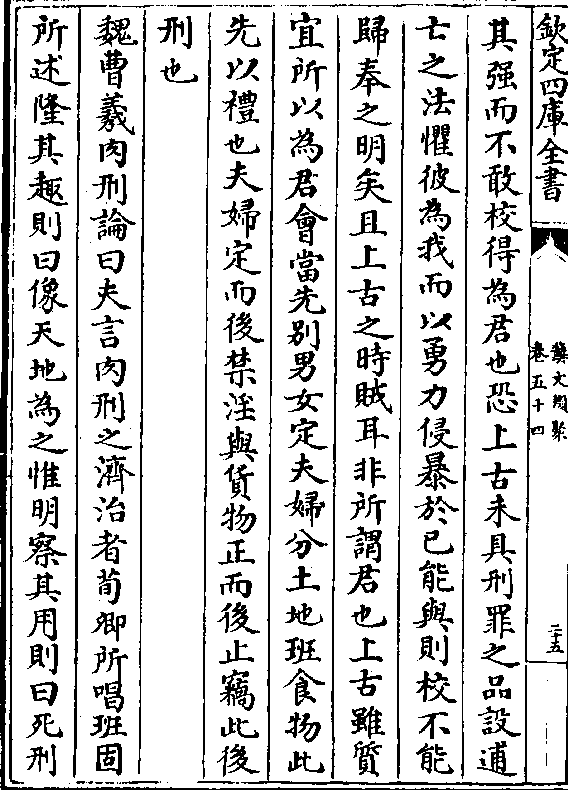 欽定四庫全書
藝文類聚
卷五十四
二十五
其强而不敢校得為君也恐上古未具刑罪之品設逋
亡之法懼彼為我而以勇力侵暴於已能與則校不能
歸奉之明矣且上古之時賊耳非所謂君也上古雖質
宜所以為君會當先别男女定夫婦分土地班食物此
先以禮也夫婦定而後禁淫與貨物正而後止竊此後
刑也
魏曹羲肉刑論曰夫言肉刑之濟治者荀卿所唱班固
所述隆其趣則曰像天地為之惟明察其用則曰死刑